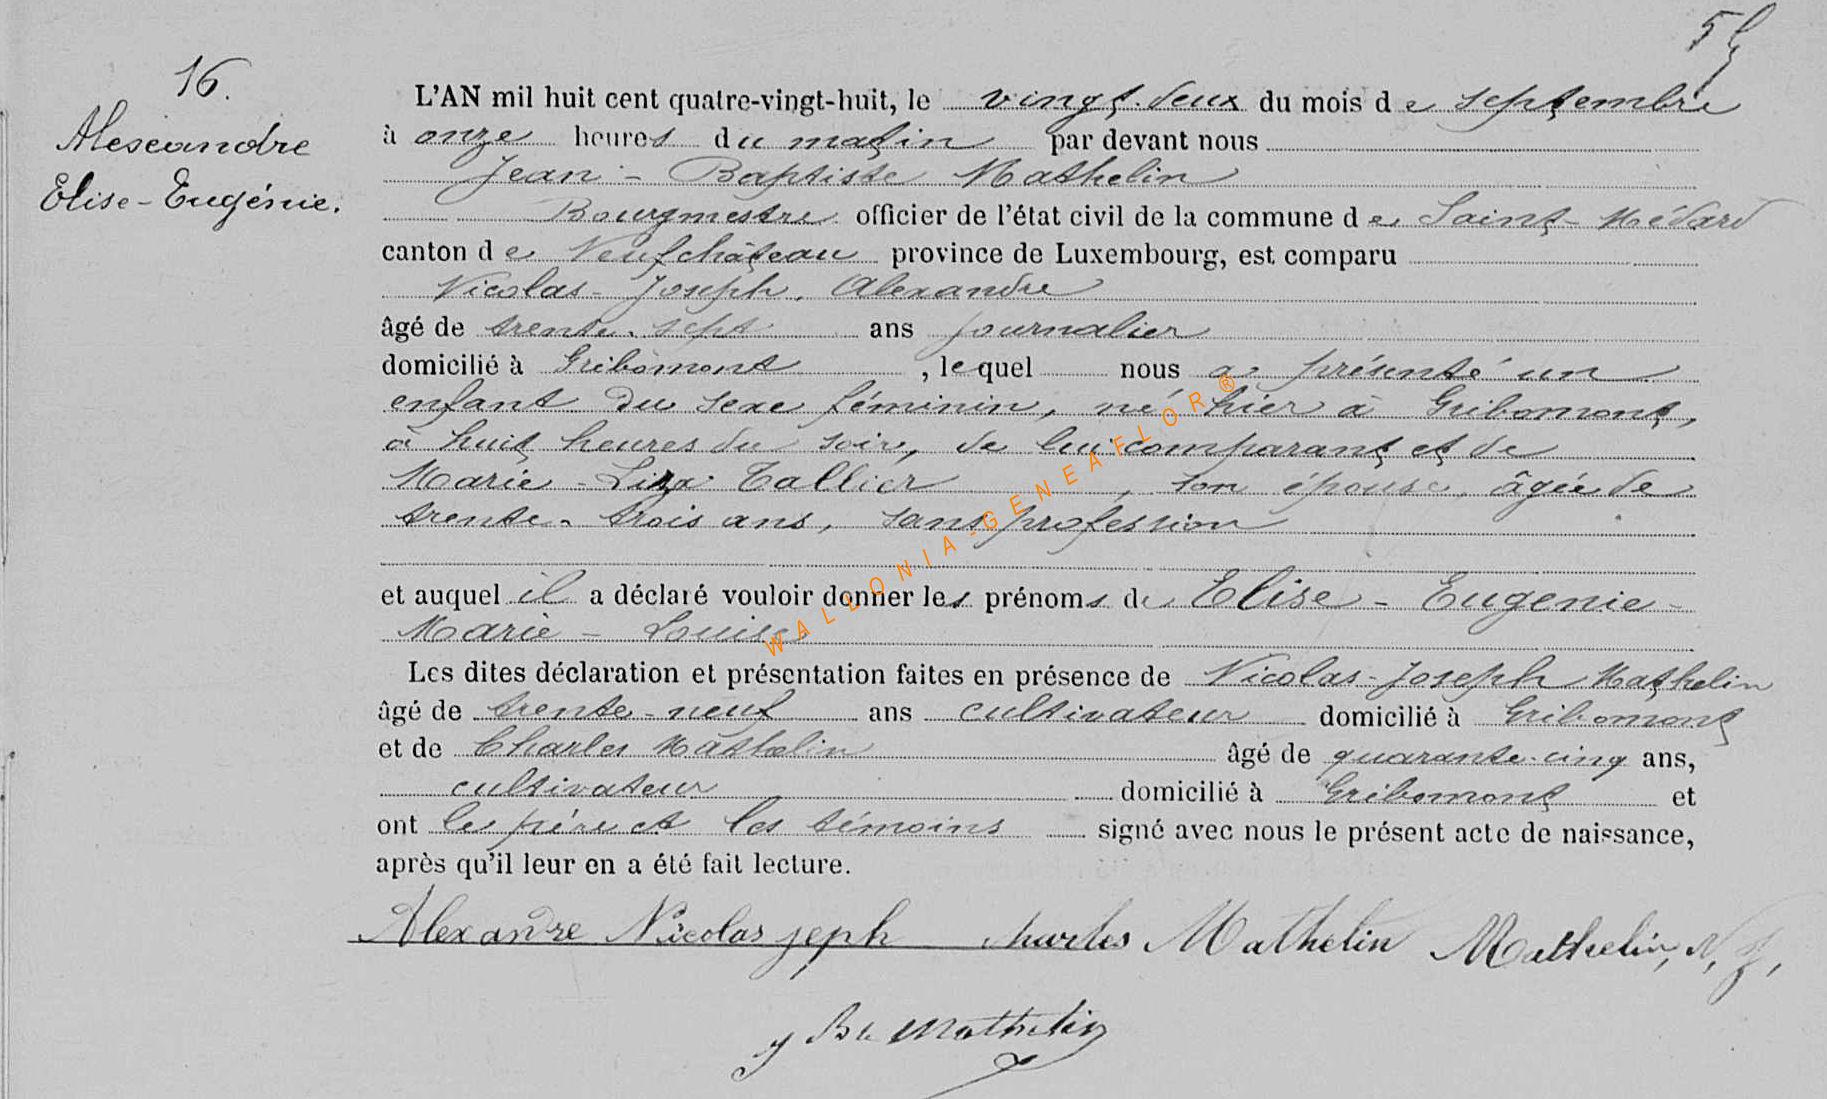 16.
Alexandre
Elise-Eugénie.
L'AN mil huit cent quatre-vingt-huit, le vingt-deux du mois de septembre
à onze heures du matin par devant nous
Jean-Baptiste Mathelin
Bourgmestre officier de l'état civil de la commune de Saint-Médard
canton de Neufchâteau province de Luxembourg, est comparu
Nicolas-Joseph Alexandre
âgé de trente-sept ans journalier
domicilié à Gribomont, lequel nous a présenté un
enfant du sexe féminin, né hier à Gribomont,
à huit heures du soir, de lui comparant et de
Marie-Liza Tallier, son épouse, âgée de
trente-trois ans, sans profession
et auquel il a déclaré vouloir donner les prénoms de Elise-Eugenie-
Marie-Louise
Les dites déclaration et présentation faites en présence de Nicolas-Joseph Mathelin
âgé de trente-neuf ans cultivateur domicilié à Gribomont
et de Charles Mathelin âgé de quarante-cinq ans,
cultivateur domicilié à Gribomont et
ont le père et les témoins signé avec nous le présent acte de naissance,
après qu'il leur en a été fait lecture.
Alexandre Nicolas jeph Charles Mathelin Mathelin, N, J,
J Bte Mathelin
WALLONIA-GENEAFLOR®